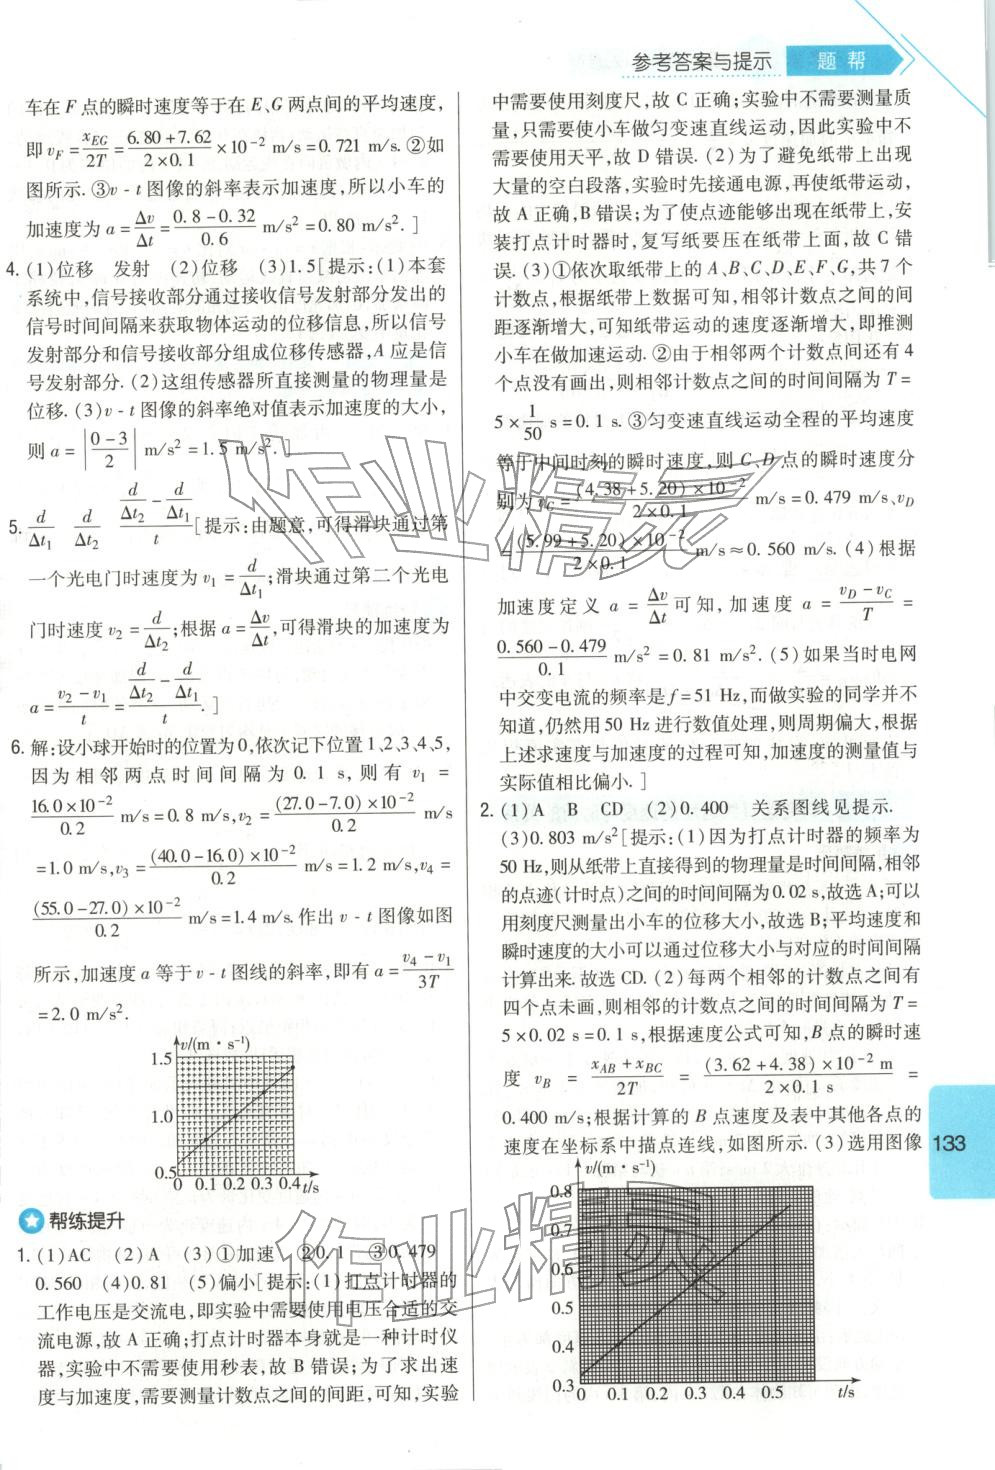 参考答案与提示 题 帮
车在 F 点的瞬时速度等于在 E、G 两点间的平均速度，
即 v_F = x_EG/2T = (6.80+7.62)/(2×0.1) ×10⁻² m/s = 0.721 m/s. ②如
图所示. ③v - t 图像的斜率表示加速度，所以小车的
加速度为 a = Δv/Δt = (0.8-0.32)/0.6 m/s² = 0.80 m/s². ]
4. (1)位移 发射 (2)位移 (3)1.5[提示:(1)本套
系统中，信号接收部分通过接收信号发射部分发出的
信号时间间隔来获取物体运动的位移信息，所以信号
发射部分和信号接收部分组成位移传感器，A 应是信
号发射部分. (2)这组传感器所直接测量的物理量是
位移. (3)v - t 图像的斜率绝对值表示加速度的大小，
则 a = |(0-3)/2| m/s² = 1.5 m/s². ]
5. d/Δt₁ d/Δt₂ (d/Δt₂ - d/Δt₁)/t [提示:由题意，可得滑块通过第
一个光电门时速度为 v₁ = d/Δt₁;滑块通过第二个光电
门时速度 v₂ = d/Δt₂;根据 a = Δv/Δt，可得滑块的加速度为
a = (v₂-v₁)/t = (d/Δt₂ - d/Δt₁)/t. ]
6. 解:设小球开始时的位置为0，依次记下位置1、2、3、4、5，
因为相邻两点时间间隔为 0. 1 s，则有 v₁ =
16.0×10⁻²/0.2 m/s = 0.8 m/s，v₂ = (27.0-7.0)×10⁻²/0.2 m/s
= 1.0 m/s，v₃ = (40.0-16.0)×10⁻²/0.2 m/s = 1.2 m/s，v₄ =
(55.0-27.0)×10⁻²/0.2 m/s = 1.4 m/s. 作出 v - t 图像如图
所示，加速度 a 等于 v - t 图线的斜率，即有 a = (v₄-v₁)/3T
= 2.0 m/s².
v/(m·s⁻¹)
1.5
1.0
0.5
0 0.1 0.2 0.3 0.4 t/s
帮练提升
1. (1)AC (2)A (3)①加速 ②0.1 ③0.479
0.560 (4)0.81 (5)偏小[提示:(1)打点计时器的
工作电压是交流电，即实验中需要使用电压合适的交
流电源，故 A 正确;打点计时器本身就是一种计时仪
器，实验中不需要使用秒表，故 B 错误;为了求出速
度与加速度，需要测量计数点之间的间距，可知，实验
中需要使用刻度尺，故 C 正确;实验中不需要测量质
量，只需要使小车做匀变速直线运动，因此实验中不
需要使用天平，故 D 错误. (2)为了避免纸带上出现
大量的空白段落，实验时先接通电源，再使纸带运动，
故 A 正确，B 错误;为了使点迹能够出现在纸带上，安
装打点计时器时，复写纸要压在纸带上面，故 C 错
误. (3)①依次取纸带上的 A、B、C、D、E、F、G，共 7 个
计数点，根据纸带上数据可知，相邻计数点之间的间
距逐渐增大，可知纸带运动的速度逐渐增大，即推测
小车在做加速运动. ②由于相邻两个计数点间还有 4
个点没有画出，则相邻计数点之间的时间间隔为 T =
5×1/50 s = 0.1 s. ③匀变速直线运动全程的平均速度
等于中间时刻的瞬时速度，则 C、D 点的瞬时速度分
别为 v_C = (4.38+5.20)×10⁻²/(2×0.1) m/s = 0.479 m/s、v_D
= (5.99+5.20)×10⁻²/(2×0.1) m/s≈0.560 m/s. (4)根据
加速度定义 a = Δv/Δt 可知，加速度 a = (v_D-v_C)/T =
(0.560-0.479)/0.1 m/s² = 0.81 m/s². (5)如果当时电网
中交变电流的频率是 f = 51 Hz，而做实验的同学并不
知道，仍然用 50 Hz 进行数值处理，则周期偏大，根据
上述求速度与加速度的过程可知，加速度的测量值与
实际值相比偏小. ]
2. (1)A B CD (2)0.400 关系图线见提示.
(3)0.803 m/s²[提示:(1)因为打点计时器的频率为
50 Hz，则从纸带上直接得到的物理量是时间间隔，相邻
的点迹(计时点)之间的时间间隔为0.02 s，故选A;可以
用刻度尺测量出小车的位移大小，故选 B;平均速度和
瞬时速度的大小可以通过位移大小与对应的时间间隔
计算出来. 故选 CD. (2)每两个相邻的计数点之间有
四个点未画，则相邻的计数点之间的时间间隔为 T =
5×0.02 s = 0.1 s，根据速度公式可知，B 点的瞬时速
度 v_B = (x_AB+x_BC)/2T = (3.62+4.38)×10⁻² m/(2×0.1 s) =
0.400 m/s;根据计算的 B 点速度及表中其他各点的
速度在坐标系中描点连线，如图所示. (3)选用图像
v/(m·s⁻¹)
0.8
0.7
0.6
0.5
0.4
0.3
0 0.1 0.2 0.3 0.4 0.5 t/s
133
作业精灵
作业精灵